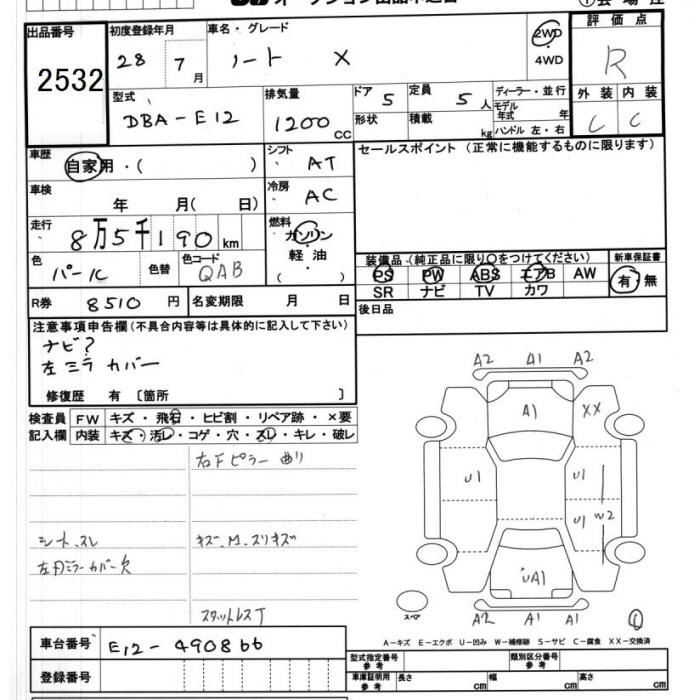 出品番号
2532
初度登録年月
28 7月
車名・グレード
ノート X
2WD
4WD
評価点
R
外装 内装
C C
型式
DBA-E12
排気量
1200 cc
ドア 5
形状
定員 5 人
積載 kg
ディーラー・並行
モデル年式 年
ハンドル 左・右
車歴
自家用・( )
シフト AT
セールスポイント (正常に機能するものに限ります)
車検
年 月( 日)
冷房 AC
走行
8万5千190km
燃料
ガソリン
軽油
( )
色 パール
色替
色コード QAB
装備品 (純正品に限り○をつけてください)
新車保証書
PS PW ABS エアB AW
有・無
SR ナビ TV カワ
R券 8510円
名変期限 月 日
後日品
注意事項申告欄(不具合内容等は具体的に記入して下さい)
ナビ?
左ミラカバー
修復歴 有 〔箇所 〕
検査員記入欄
FW キズ・飛石・ヒビ割・リペア跡・×要
内装 キズ・汚レ・コゲ・穴・スレ・キレ・破レ
右Fピラー曲リ
シートスレ
キズ.M.スリキズ
左ドミラーカバー欠
スタットレスT
A2 A1 A2
A1 XX
U1 U1
U1 W2
UA1
スペア
A2 A1 A1
①
A-キズ E-エクボ U-凹み W-補修跡 S-サビ C-腐食 XX-交換済
車台番号 E12-490866
登録番号
型式指定番号 参考
類別区分番号 参考
車庫証明用 参考 長さ cm 幅 cm 高さ cm